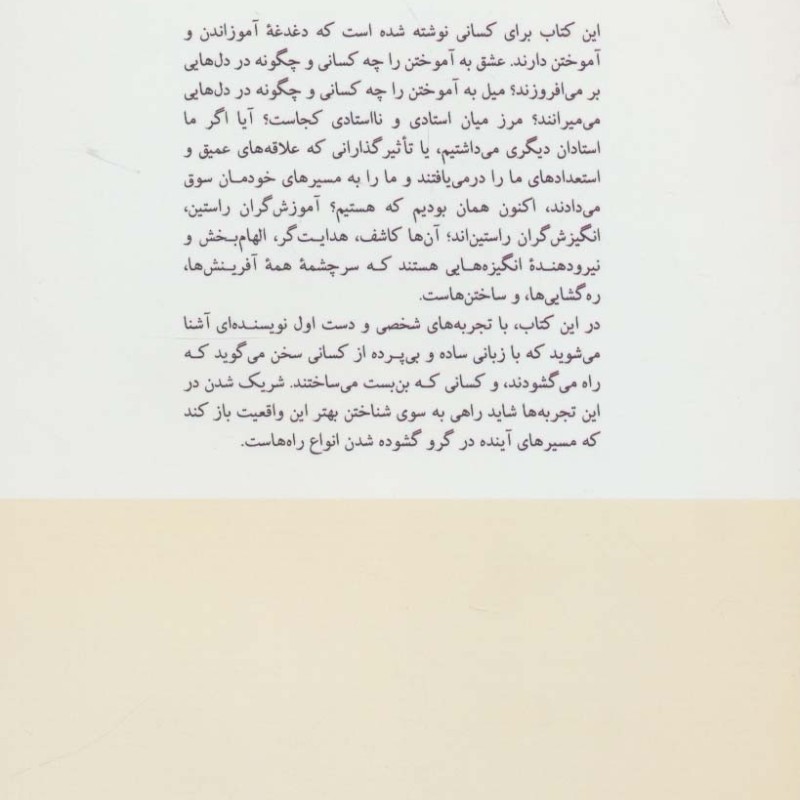 این کتاب برای کسانی نوشته شده است که دغدغهٔ آموزاندن و
آموختن دارند. عشق به آموختن را چه کسانی و چگونه در دل‌هایی
بر می‌افروزند؟ میل به آموختن را چه کسانی و چگونه در دل‌هایی
می‌میرانند؟ مرز میان استادی و نااستادی کجاست؟ آیا اگر ما
استادان دیگری می‌داشتیم، یا تأثیرگذارانی که علاقه‌های عمیق و
استعدادهای ما را درمی‌یافتند و ما را به مسیرهای خودمان سوق
می‌دادند، اکنون همان بودیم که هستیم؟ آموزش‌گران راستین،
انگیزش‌گران راستین‌اند؛ آن‌ها کاشف، هدایت‌گر، الهام‌بخش و
نیرودهندهٔ انگیزه‌هایی هستند که سرچشمهٔ همهٔ آفرینش‌ها،
ره‌گشایی‌ها، و ساختن‌هاست.
در این کتاب، با تجربه‌های شخصی و دست اول نویسنده‌ای آشنا
می‌شوید که با زبانی ساده و بی‌پرده از کسانی سخن می‌گوید که
راه می‌گشودند، و کسانی که بن‌بست می‌ساختند. شریک شدن در
این تجربه‌ها شاید راهی به سوی شناختن بهتر این واقعیت باز کند
که مسیرهای آینده در گرو گشوده شدن انواع راه‌هاست.